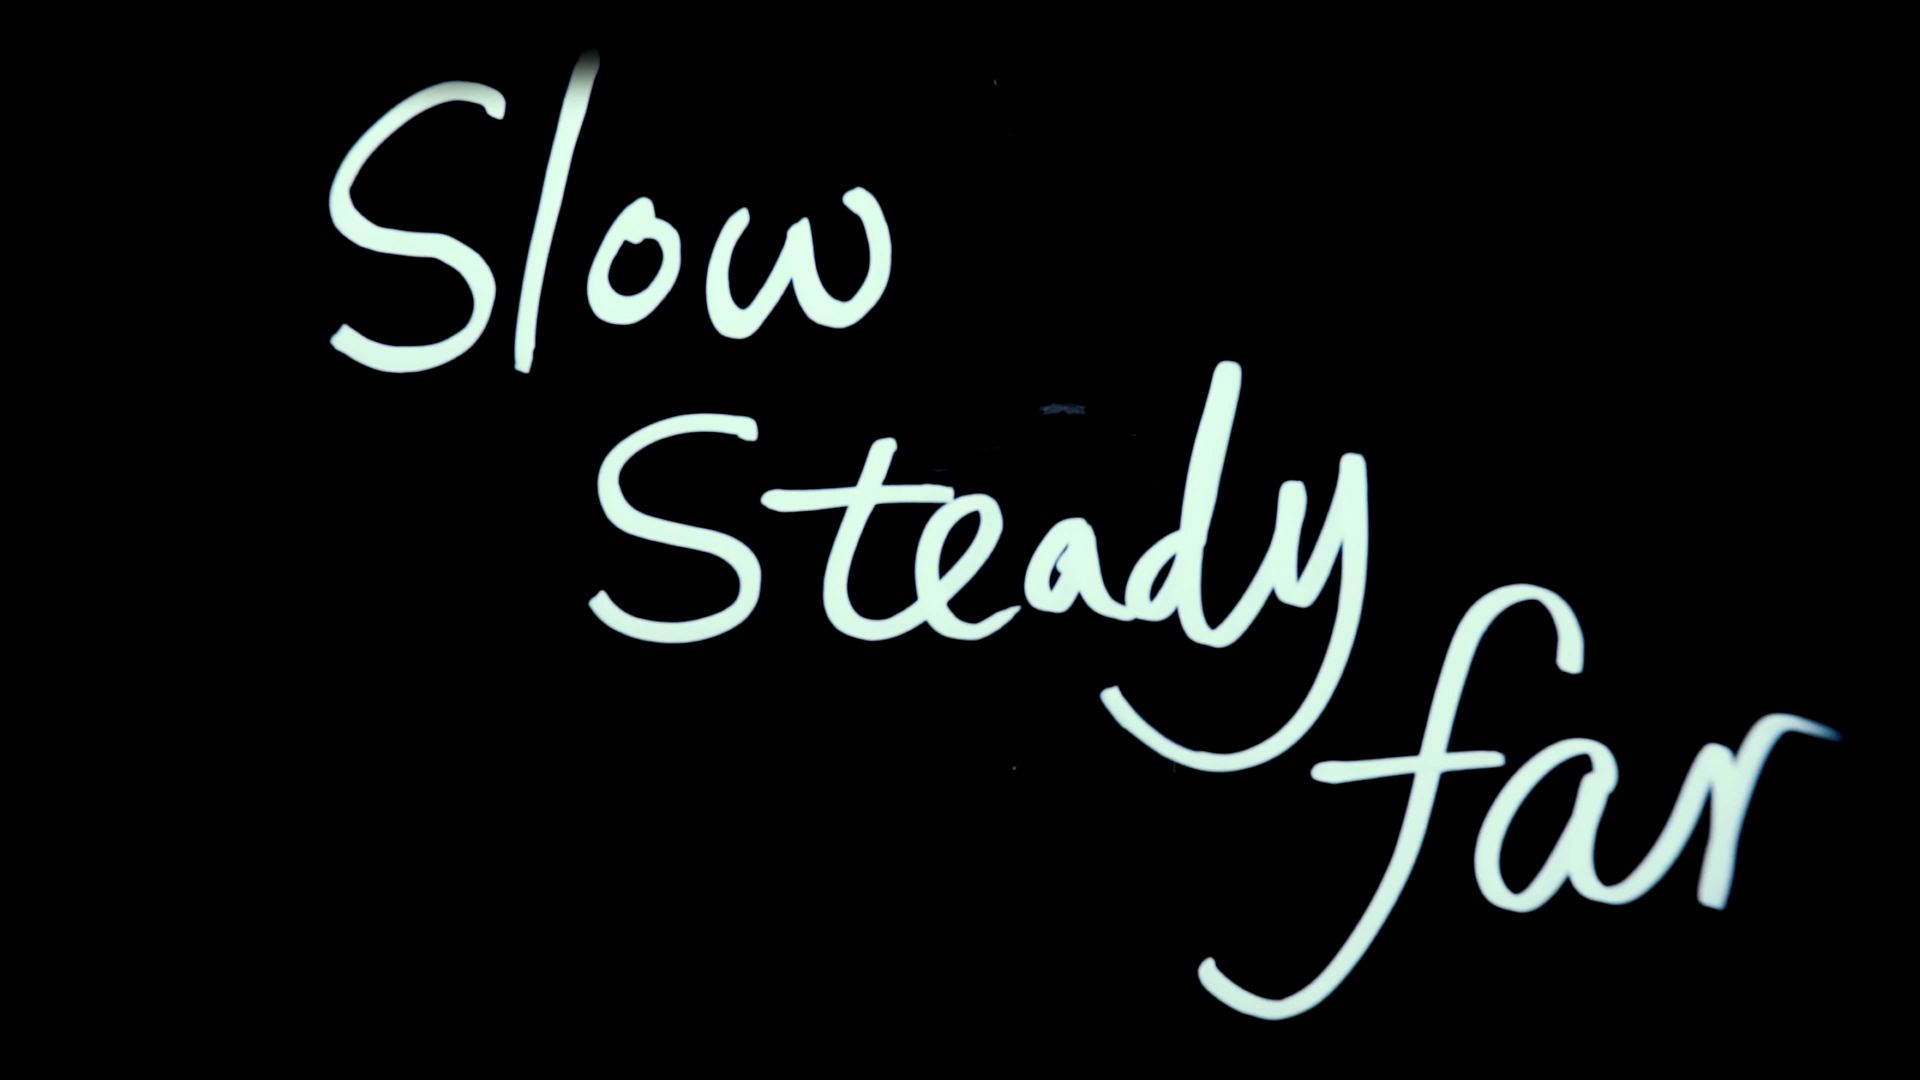 Slow
Steady
far